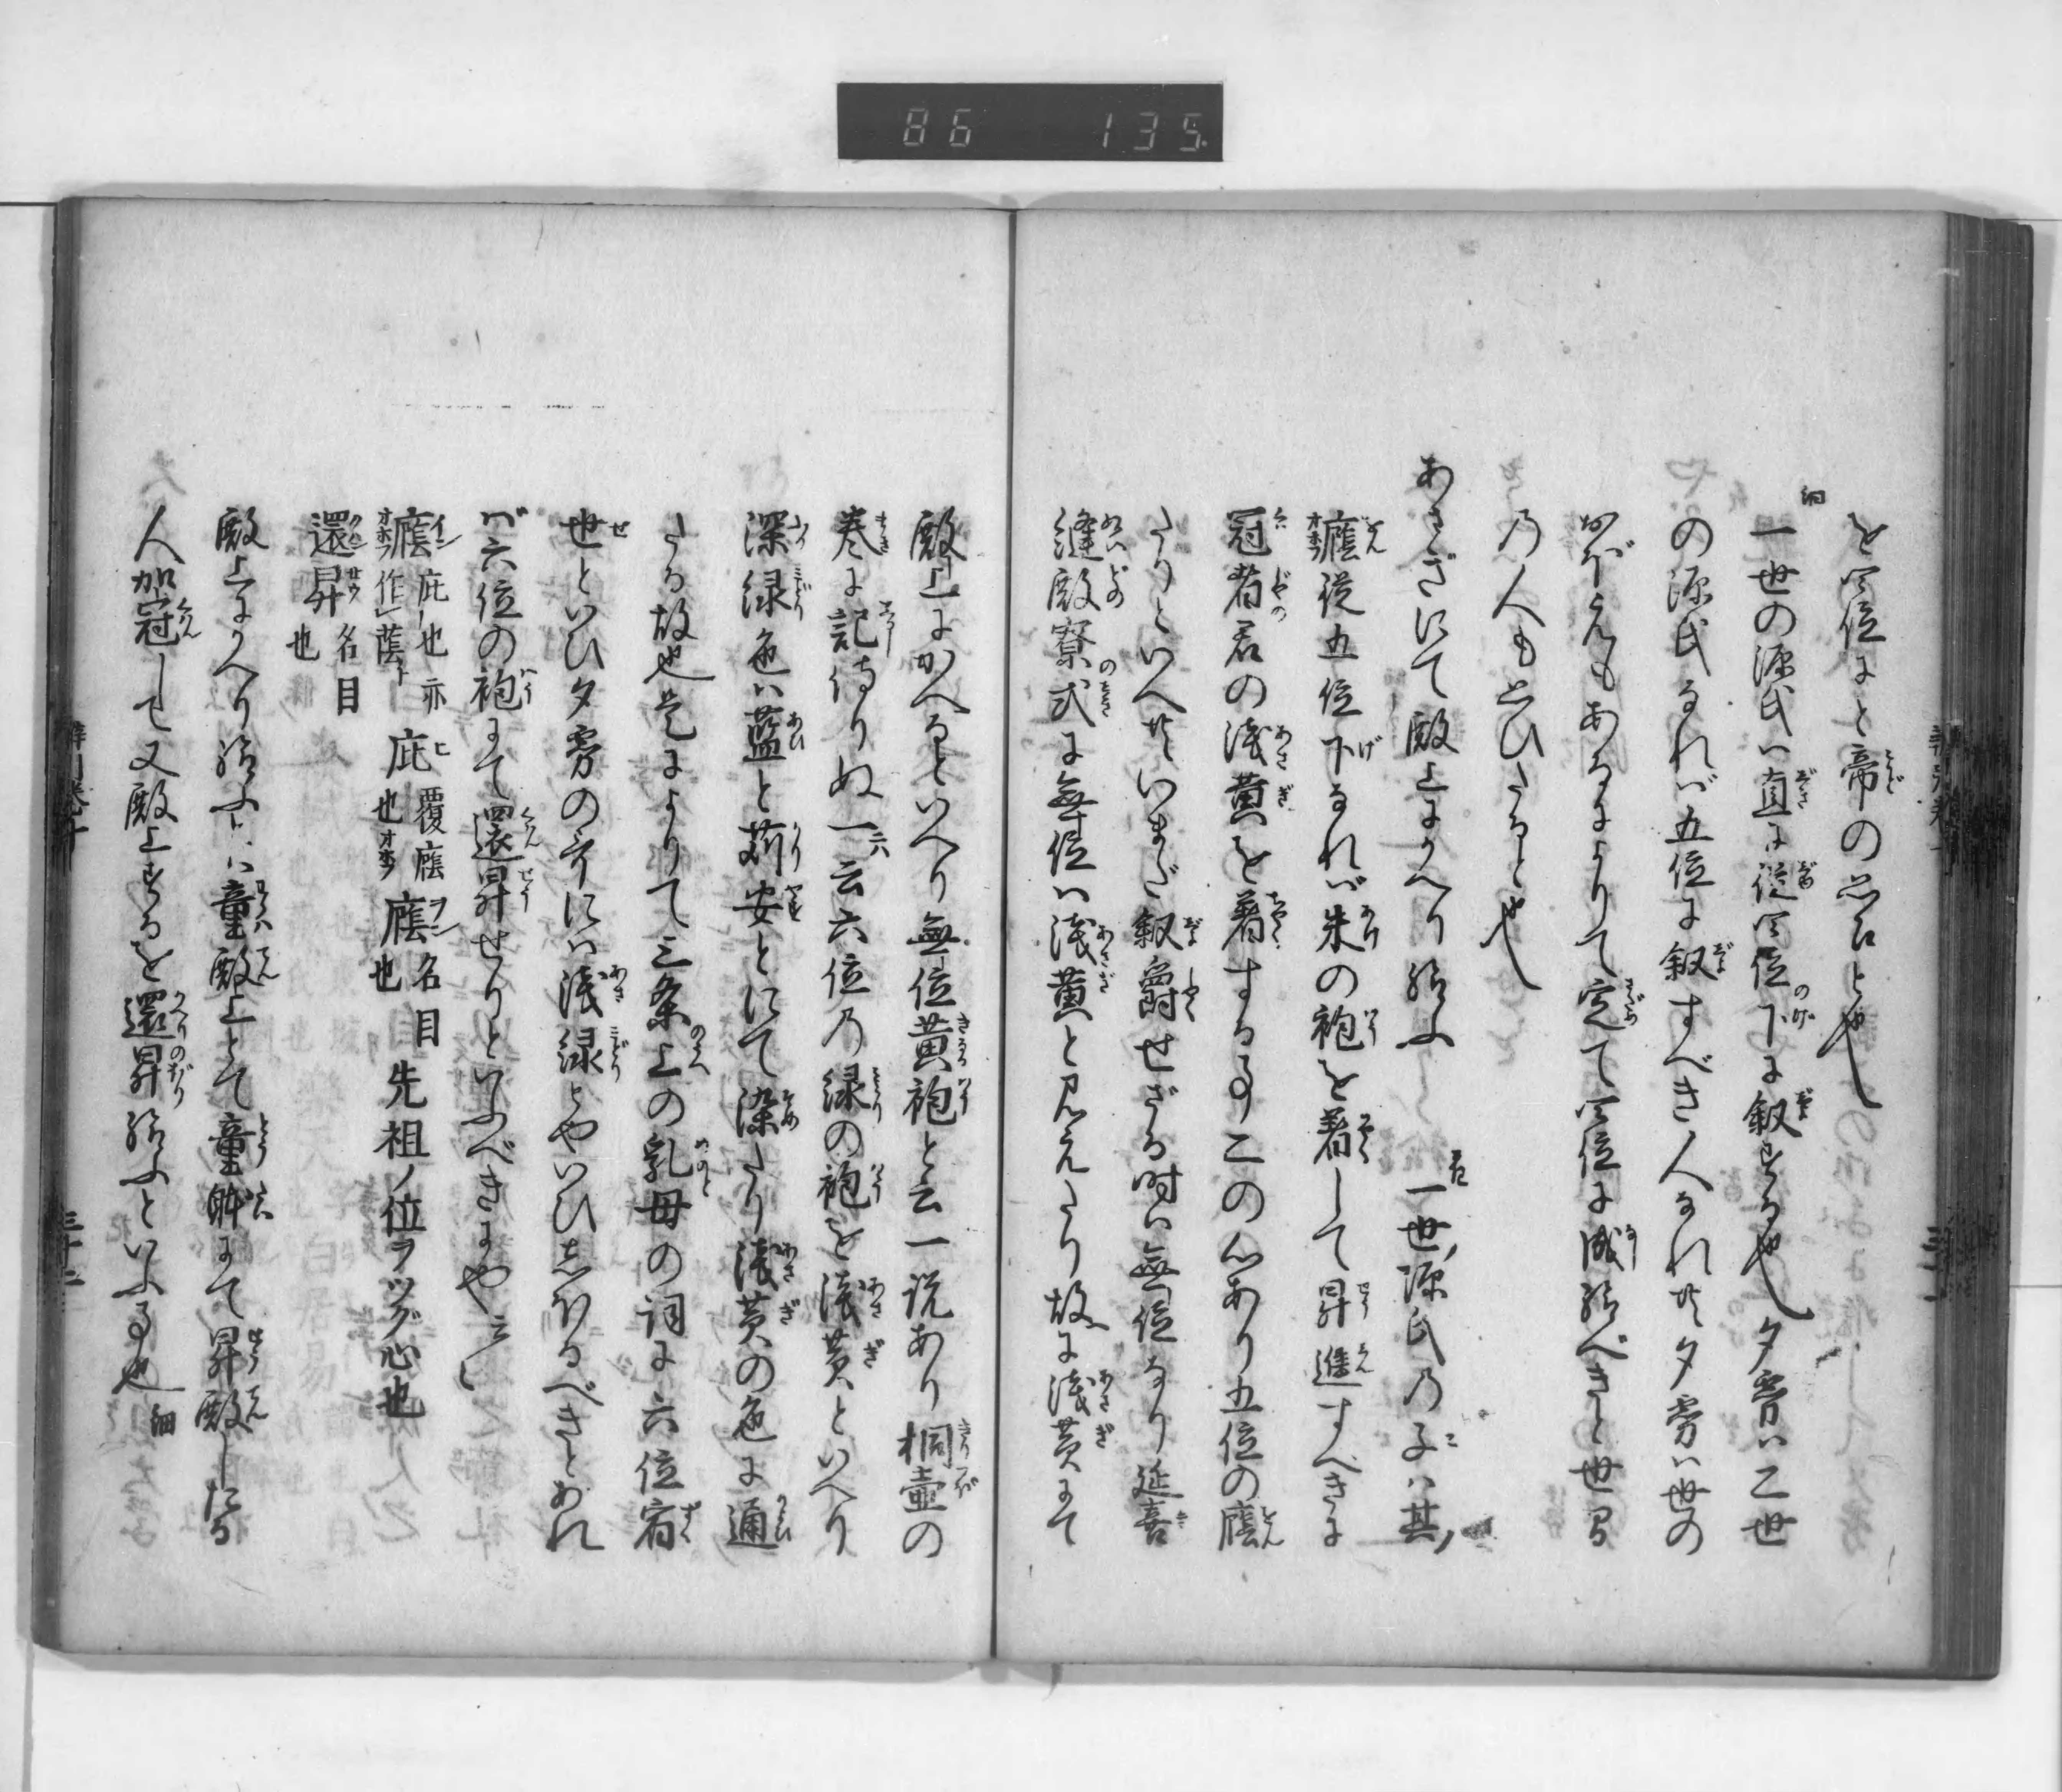 86 135
を四位にと帝の思召と也
細
一世の源氏ハ直に従四位下に叙する也夕霧ハ二世
の源氏なれバ五位に叙すべき人なれ共夕霧ハ世の
おぼえもあるによりて定て四位に成給べきと世間
の人も思ひたると也
あさぎにて殿上にかへり給ふ 一世ノ源氏の子ハ其ノ
廕従五位下なれバ朱の袍を着して昇進すべきに
冠者君の浅黄を着する事二の心あり五位の廕
たりといへ共いまだ叙爵せざる時ハ無位なり延喜
縫殿寮式に無位ハ浅黄と見えたり故に浅黄にて
殿上にかへるといへり無位黄袍と云一説あり桐壷の
巻に記侍りぬ一云六位の緑の袍を浅黄といへり
深緑色ハ藍と苅安とにて染たり浅黄の色に通
たる故也是によりて三条上の乳母の詞に六位宿
世といひ夕霧の哥にハ浅緑とやいひしほるべきとあれ
バ六位の袍にて還昇せりといふべきにや云々
廕 庇也亦作蔭 庇 覆廕也 廕 名目也 先祖ノ位ヲツグ心也
還昇 名目也
殿上にかへり給ふとハ童殿上とて童躰にて昇殿したる
人加冠して又殿上するを還昇給ふといふ事也 細
三十二